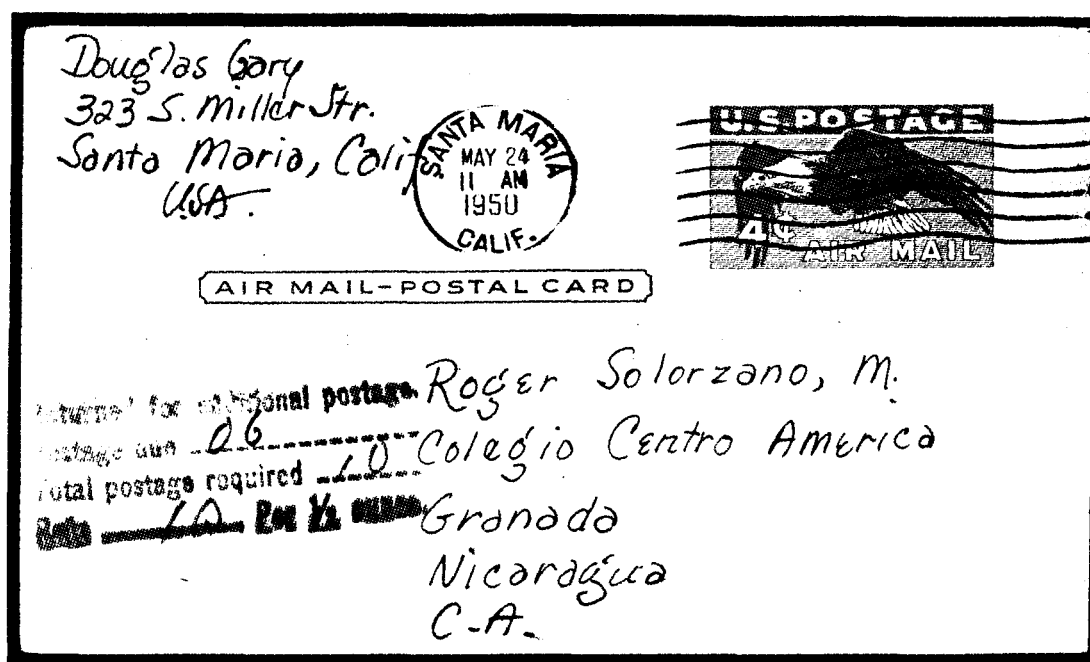 Douglas Gary
323 S. Miller Str.
Santa Maria, Calif
USA.
SANTA MARIA
MAY 24
11 AM
1950
CALIF.
U.S. POSTAGE
4¢ AIR MAIL
AIR MAIL-POSTAL CARD
Returned for additional postage.
Postage due 06
Total postage required 10
Rate 10 Per 1/2 ounce.
Roger Solorzano, M.
Colegio Centro America
Granada
Nicaragua
C-A-